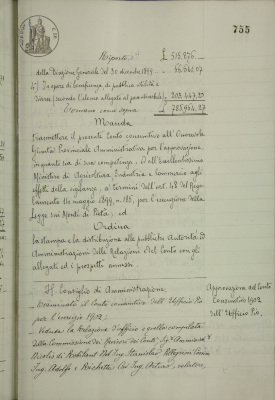 755
Riporto £ 515,876.
della Direzione Generale del 30 dicembre 1899
4°) In opere di beneficenza di pubblica utilità e
diverse (secondo l'elenco allegato al
Tornano come sopra £ 785,964,27
Manda
trasmettere il presente Conto consuntivo all'Onorevole
Giunta Provinciale Amministrativa per l'approvazione
in quanto sia di sua competenza, ed all'Eccellentissimo
Ministero di Agricoltura, Industria e Commercio agli
effetti della vigilanza, a termini dell'art. 48 del Rego-
lamento 14 maggio 1899, n. 185, per l'esecuzione della
Legge sui Monti di Pietà, ed
Ordina
la stampa e la distribuzione alle pubbliche Autorità ed
Amministrazioni della Relazione del Conto con gli
allegati ed i prospetti annessi.
Il Consiglio di Amministrazione
Approvazione del Conto
Consuntivo 1902
dell'Ufficio Pio.
Esaminato il Conto consuntivo dell'Ufficio Pio
per l'esercizio 1902;
Veduta la Relazione d'ufficio e quella compilata
dalla Commissione dei Revisori dei Conti, Sigri
Nicolis di Robilant Nob. Ing. Stanislao, Pellegrini
Ing. Adolfo e Rachetti Cav. Ing. Arturo, relatore,